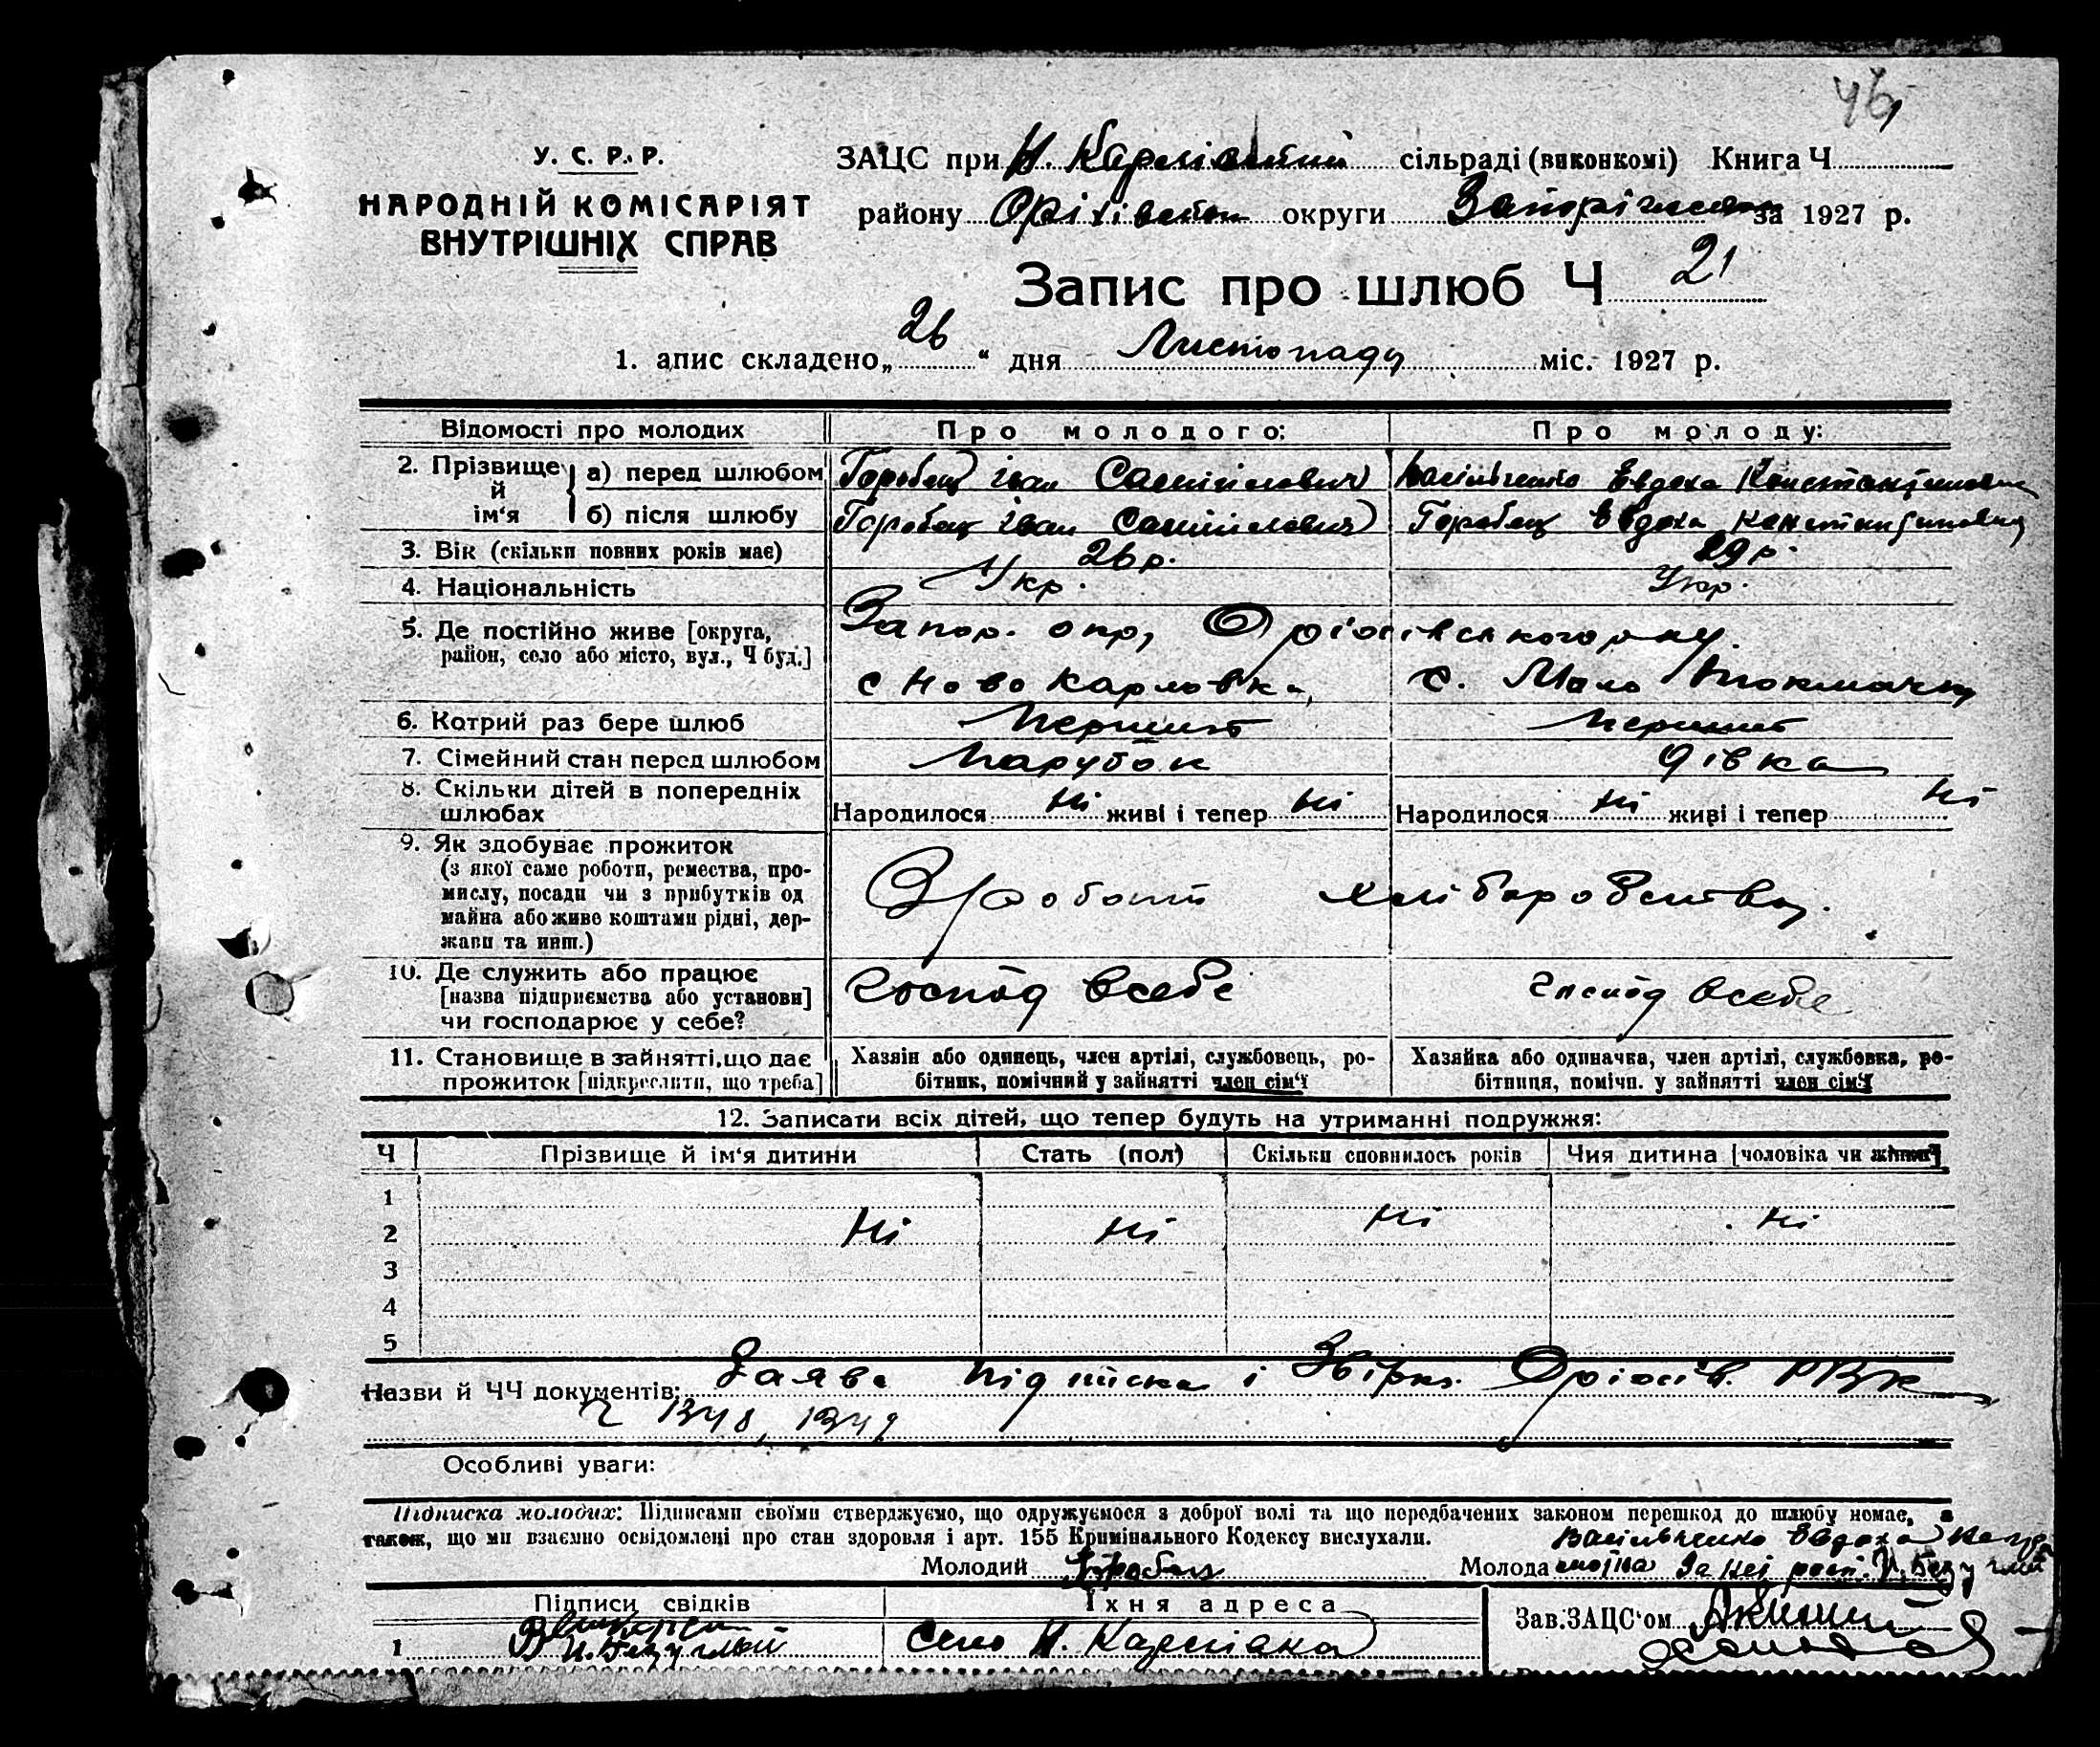 46
У. С. Р. Р.
НАРОДНІЙ КОМІСАРІЯТ
ВНУТРІШНІХ СПРАВ
ЗАЦС при Н. Карлівській сільраді (виконкомі) Книга Ч
району Оріхівськ округи Запоріжськ за 1927 р.
Запис про шлюб Ч 21
1. апис складено „26“ дня Листопаду міс. 1927 р.
Відомості про молодих Про молодого: Про молоду:
2. Прізвище й ім‘я
а) перед шлюбом Горобец іван Самійлович Васильченко Евдоха Константиновна
б) після шлюбу Горобец іван Самійлович Горобец Евдоха Константиновна
3. Вік (скільки повних років має) 26 р. 29 р.
4. Національність Укр. Укр.
5. Де постійно живе [округа, район, село або місто, вул., Ч буд.] Запор. окр, Оріхівського р-ну
с Ново Карловка, с. Мало Токмачка
6. Котрий раз бере шлюб Перший Перший
7. Сімейний стан перед шлюбом Парубок дівка
8. Скільки дітей в попередніх шлюбах Народилося Ні живі і тепер Ні Народилося Ні живі і тепер Ні
9. Як здобуває прожиток
(з якої саме роботи, ремества, про-
мислу, посади чи з прибутків од
майна або живе коштами рідні, дер-
жави та инш.)
З роботи хліборобства.
10. Де служить або працює
[назва підприємства або установи]
чи господарює у себе?
господ всебе господ всебе
11. Становище в зайнятті, що дає
прожиток [підкреслити, що треба]
Хазяін або одинець, член артілі, службовець, ро-
бітник, помічний у зайнятті член сім‘ї
Хазяйка або одиначка, член артілі, службовка, ро-
бітниця, помічн. у зайнятті член сім‘ї
12. Записати всіх дітей, що тепер будуть на утриманні подружжя:
Ч Прізвище й ім‘я дитини Стать (пол) Скільки сповнилось років Чия дитина [чоловіка чи жінки]
1
2 Ні Ні Ні Ні
3
4
5
Назви й ЧЧ документів: Заява Підписка і Оріхів. РВК
1348, 1349
Особливі уваги:
Підписка молодих: Підписами своїми стверджуємо, що одружуємося з доброї волі та що передбачених законом перешкод до шлюбу немає, а
також, що ми взаємно освідомлені про стан здоровля і арт. 155 Кримінального Кодексу вислухали.
Васильченко Евдоха
Молодий Горобец Молода За неї росп. И. Безуглий
Підписи свідків Їхня адреса Зав. ЗАЦС‘ом
1 И. Безуглый Село Н. Карлівка